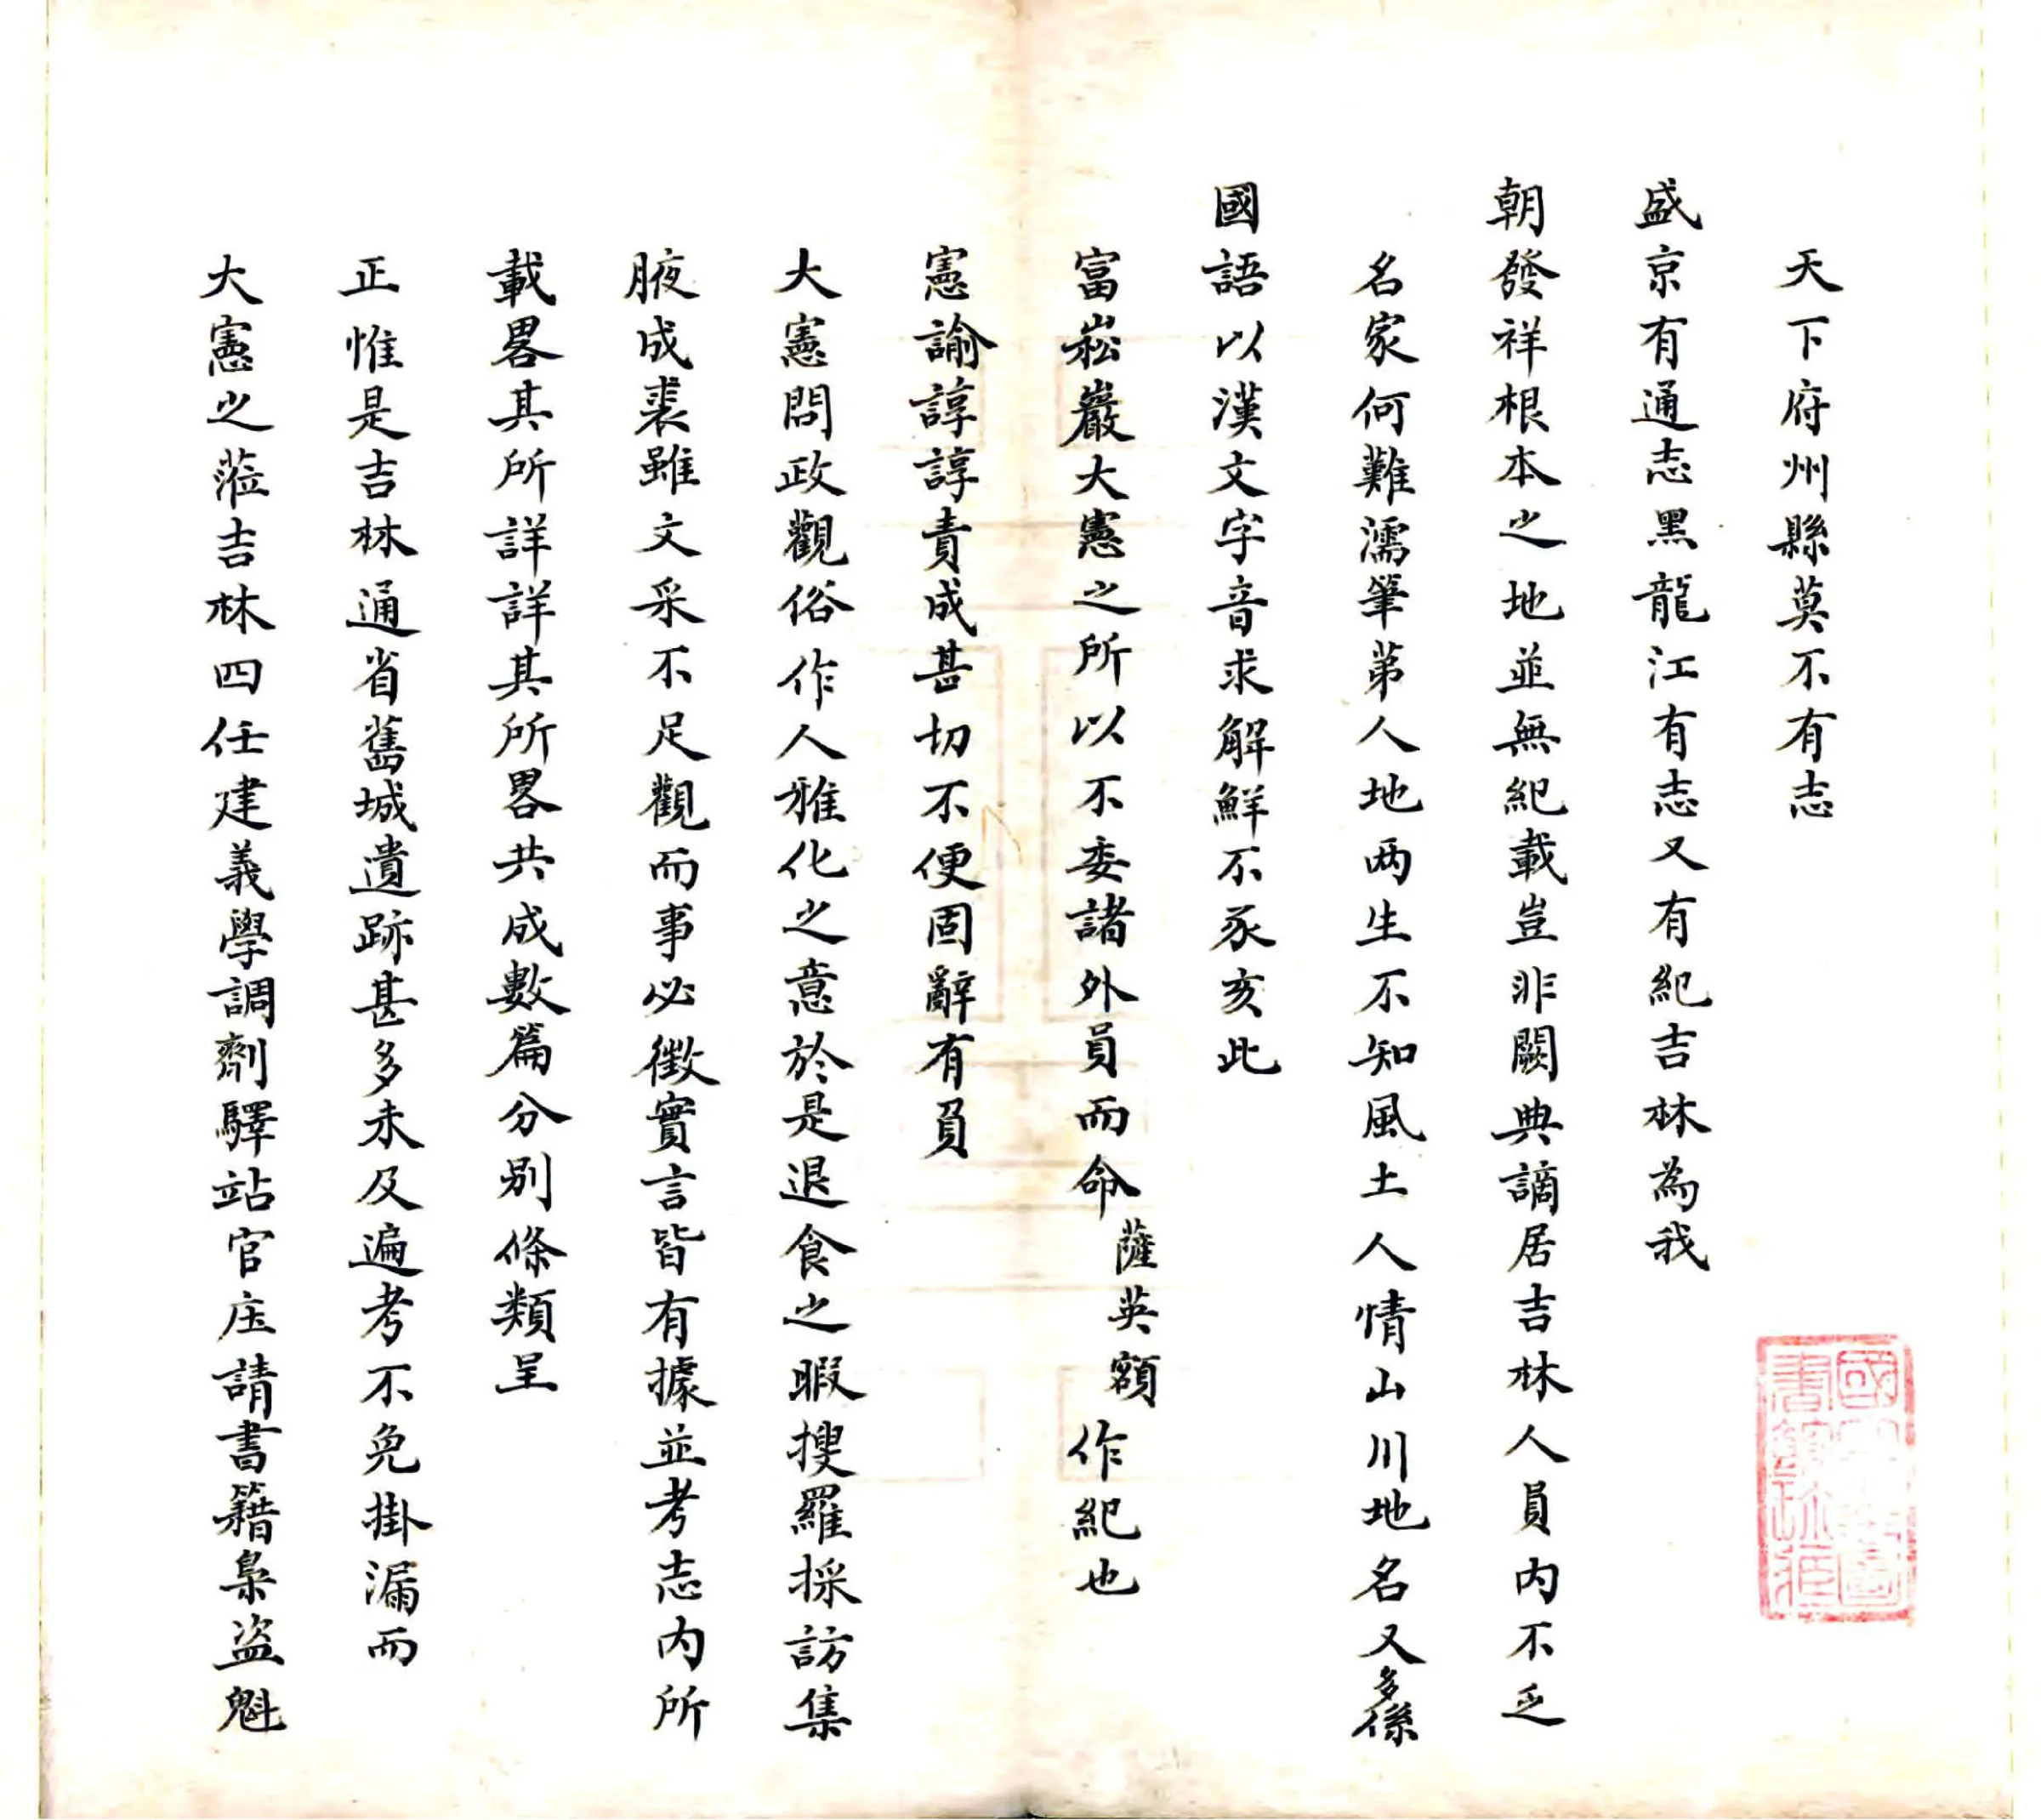 天下府州縣莫不有志
盛京有通志黑龍江有志又有紀吉林為我
朝發祥根本之地並無紀載豈非闕典謫居吉林人員內不乏
名家何難濡筆第人地两生不知風土人情山川地名又多係
國語以漢文字音求解鮮不豕亥此
富崧巖大憲之所以不委諸外員而命薩英額作紀也
憲諭諄諄責成甚切不便固辭有負
大憲問政觀俗作人雅化之意於是退食之暇搜羅採訪集
腋成裘雖文采不足觀而事必徵實言皆有據並考志內所
載畧其所詳詳其所畧共成數篇分別條類呈
正惟是吉林通省舊城遺跡甚多未及遍考不免掛漏而
大憲之蒞吉林四任建義學調劑驛站官庄請書籍梟盜魁
國立圖書館珍藏